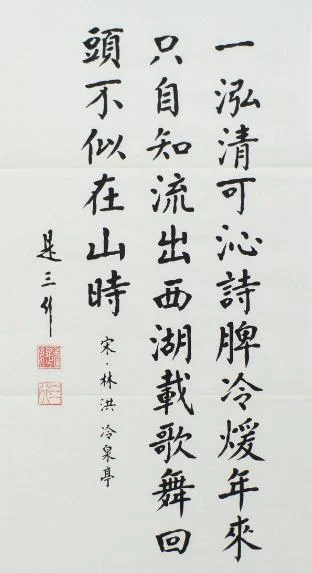 一泓清可沁詩脾冷煖年來
只自知流出西湖載歌舞回
頭不似在山時
宋·林洪 冷泉亭